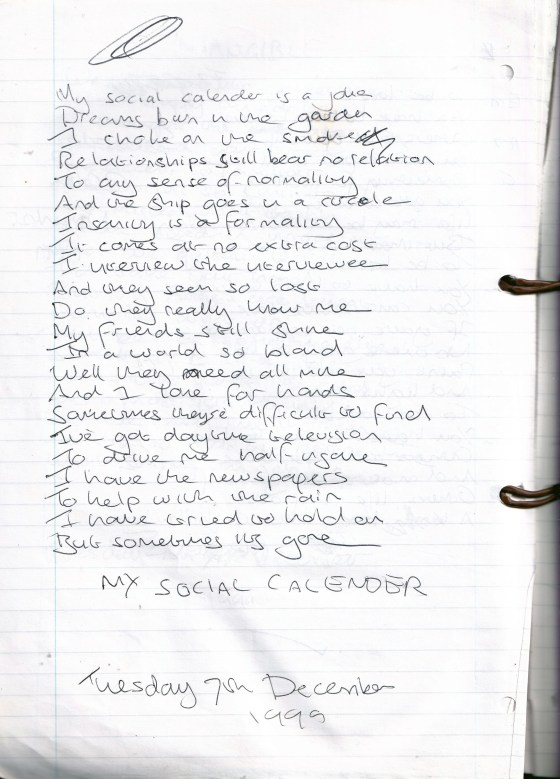 My social calender is a joke
Dreams burn in the garden
I choke on the smoke
Relationships still bear no relation
To any sense of normality
And the ship goes in a circle
Insanity is a formality
It comes at no extra cost
I interview the interviewee
And they seem so lost
Do they really know me
My friends still shine
In a world so bland
Well they need all mine
And I for hands
Sometimes they're difficult to find
I've got daytime television
To drive me half-insane
I have the newspapers
To help with the rain
I have tried to hold on
But sometimes it's gone
MY SOCIAL CALENDER
Tuesday 7th December
1999